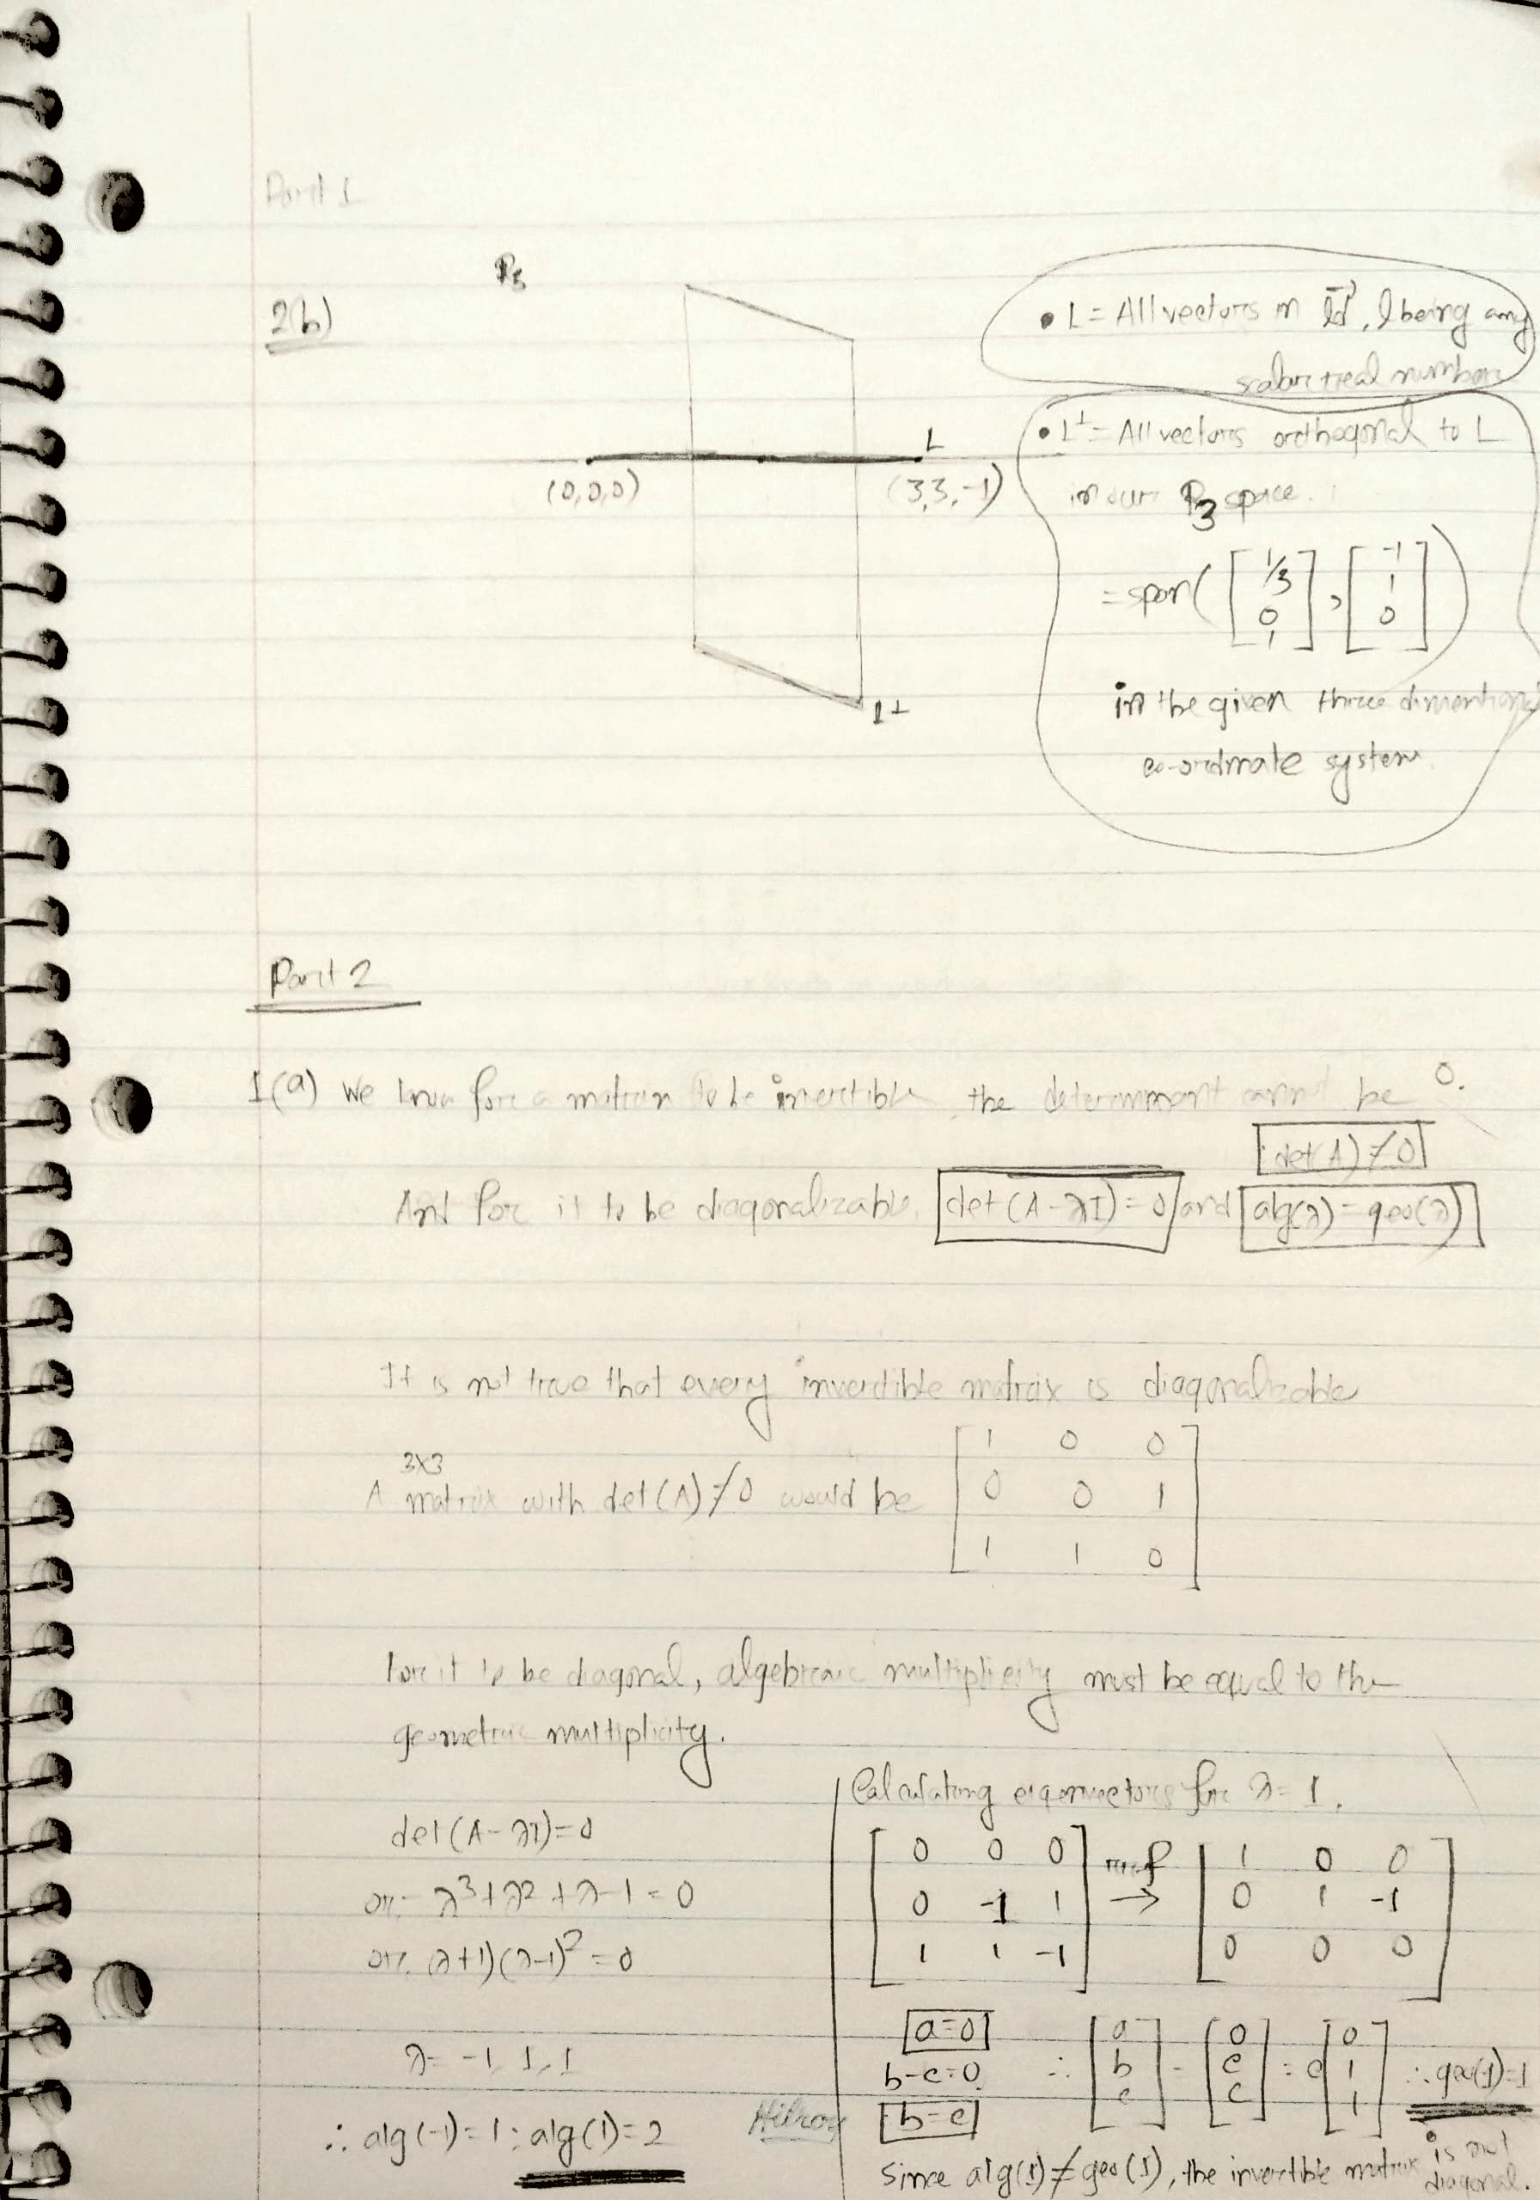 Part 1
2(b)
P₃
• L = All vectors in ld⃗, l being any
scalar real number
L
(0,0,0)
(3,3,-1)
• L⊥ = All vectors orthogonal to L
in our P₃ space.
= span([1/3 0 1], [-1 1 0])
in the given three dimentional
co-ordinate system.
L⊥
Part 2
1(a) We know for a matrix to be invertible, the determinant cannot be 0.
det(A) ≠ 0
And for it to be diagonalizable, det(A-λI)=0 and alg(λ) = geo(λ)
It is not true that every invertible matrix is diagonalizable
A 3x3 matrix with det(A) ≠ 0 would be
[1 0 0
0 0 1
1 1 0]
For it to be diagonal, algebraic multiplicity must be equal to the
geometric multiplicity.
det(A-λI)=0
or, -λ³+λ²+λ-1=0
or, (λ+1)(λ-1)²=0
λ= -1, 1, 1
∴ alg(-1)=1; alg(1)=2
Hilroy
Calculating eigenvectors for λ=1.
[0 0 0
0 -1 1
1 1 -1]
rref →
[1 0 0
0 1 -1
0 0 0]
a=0
b-c=0
b=c
∴ [a b c] = [0 c c] = c[0 1 1] ∴ geo(1)=1
Since alg(1) ≠ geo(1), the invertible matrix is not diagonal.